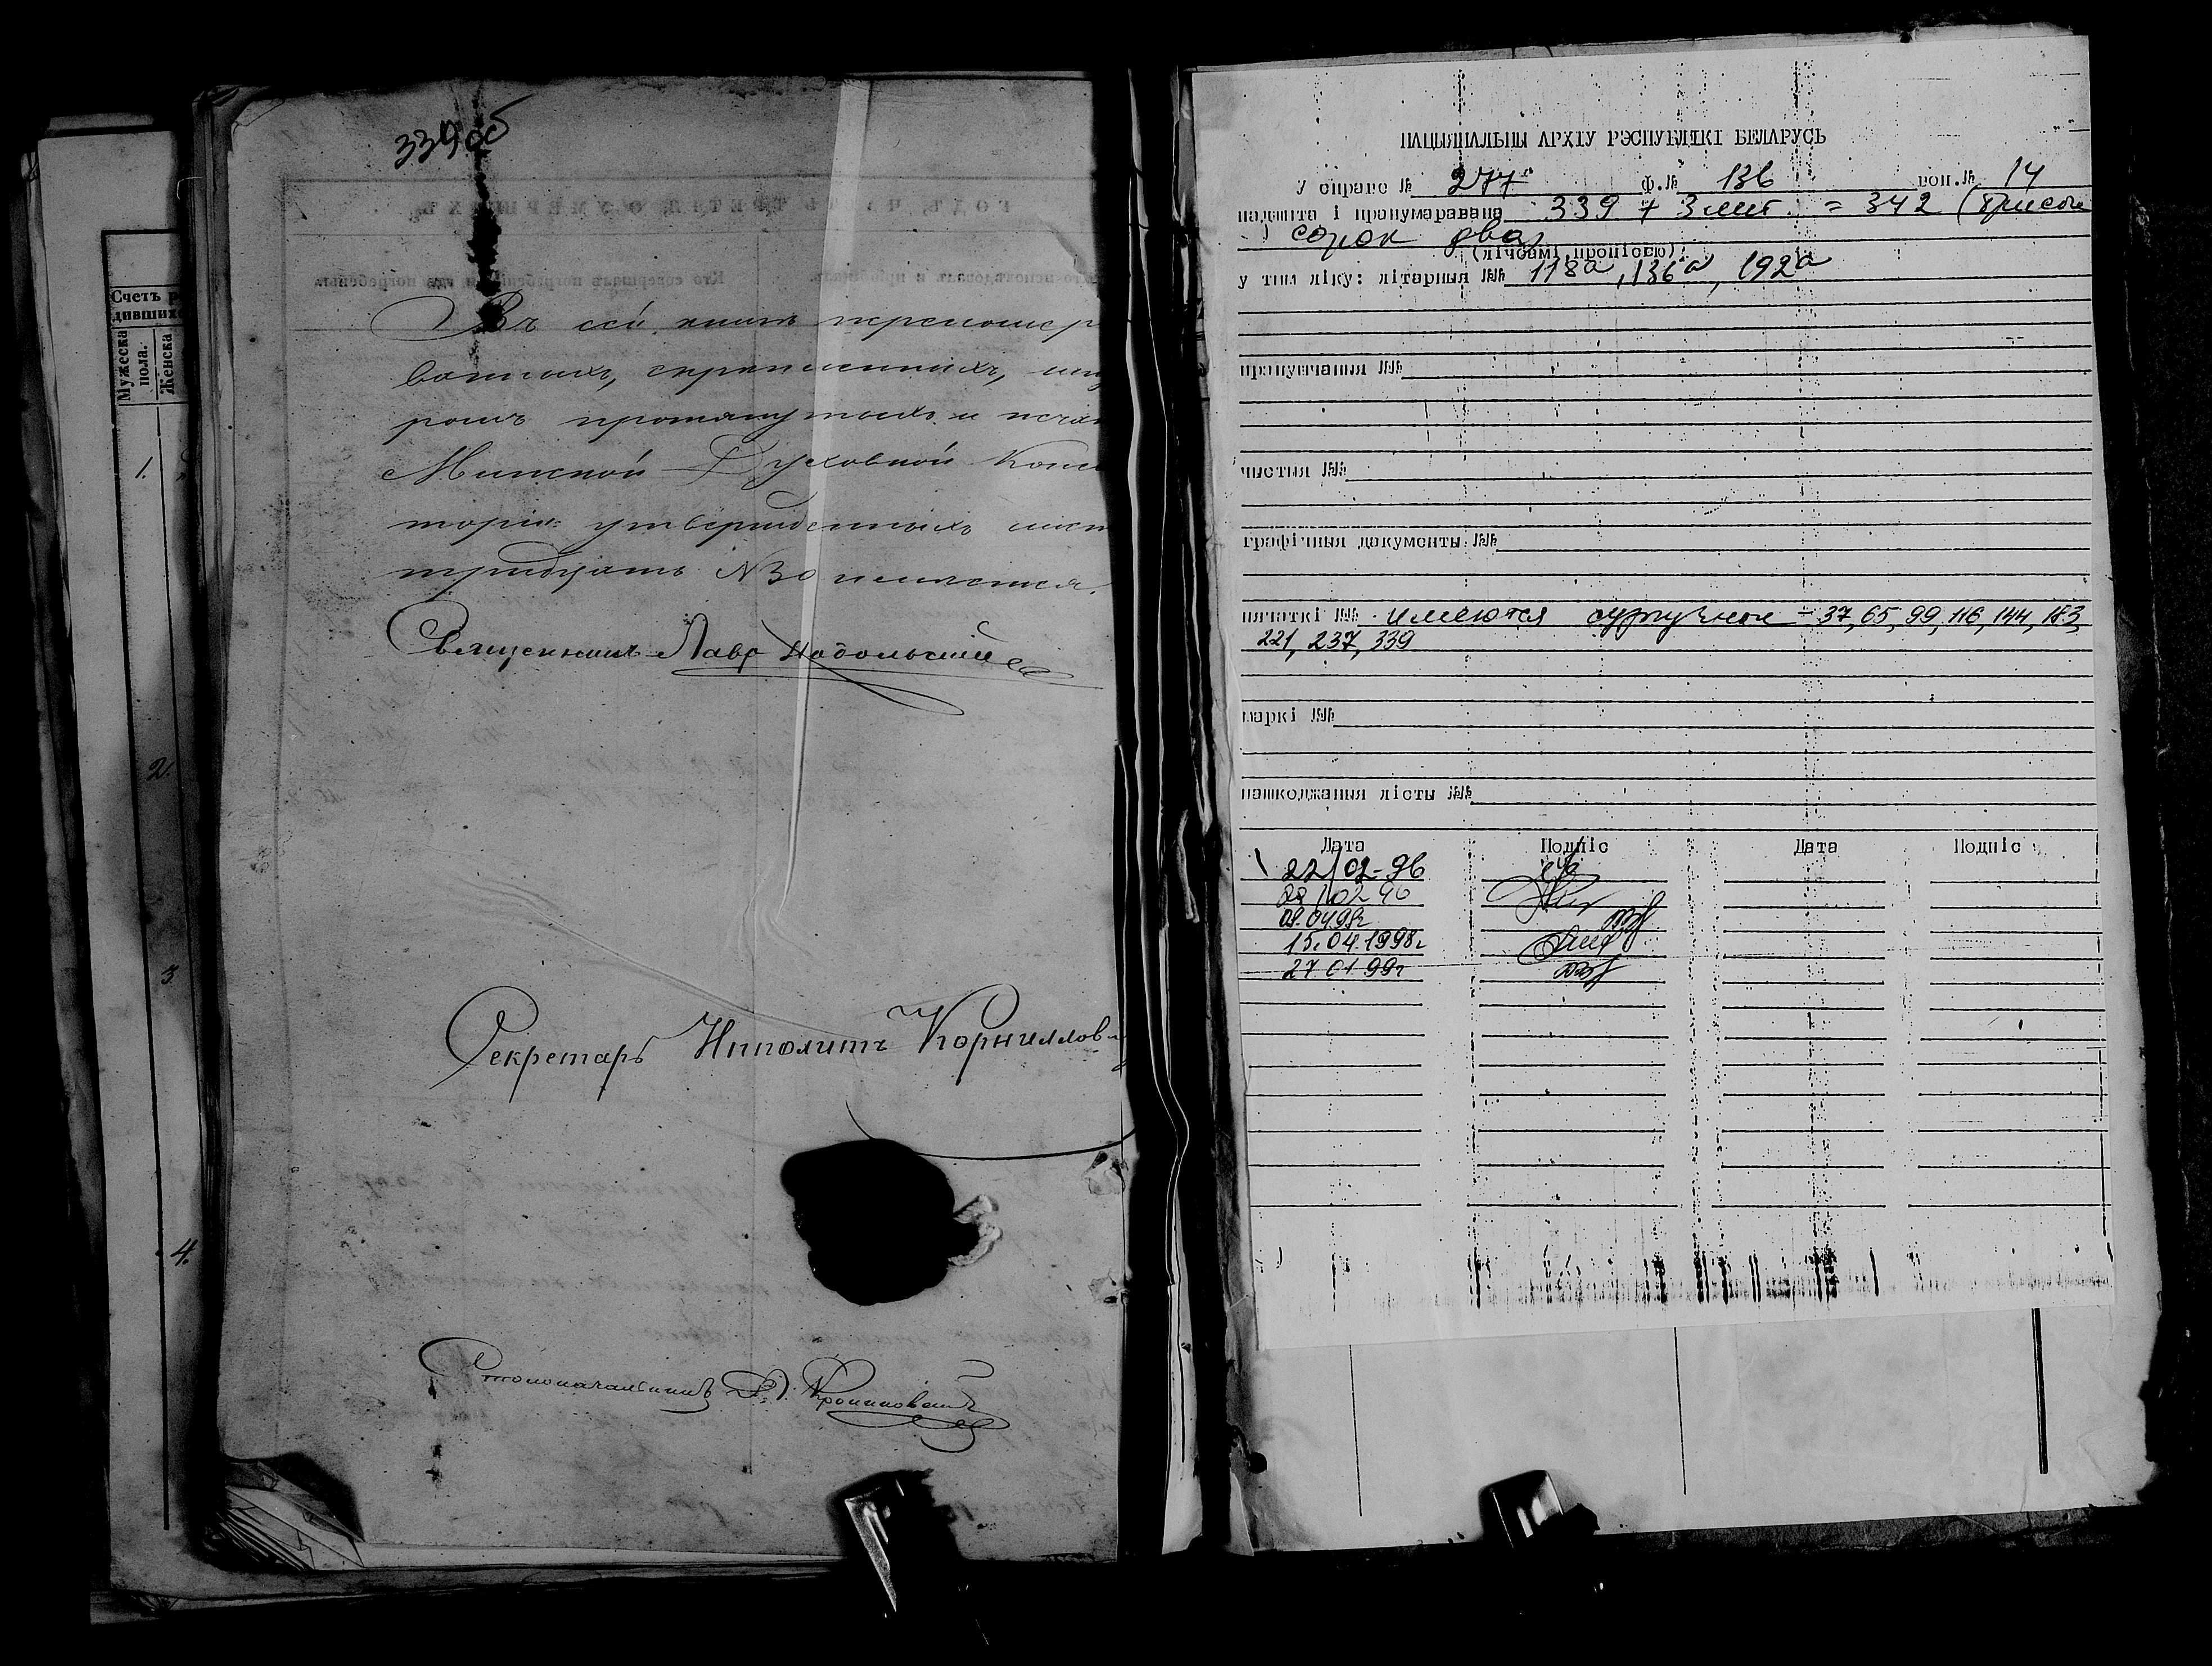 339 об
Счетъ р
дившихс
Мужеска
пола.
Женска
1.
2.
3.
4.
Въ сей книгѣ перенумеро
ванныхъ, скрѣпленныхъ, шну
ромъ протянутыхъ и печат
Минской Духовной Конси
торіи утвержденныхъ лист
тридцать № 30 имѣется.
Священникъ Лавр
Секретарь Ипполитъ Корниллов
Столоначальникъ
НАЦЫЯНАЛЬНЫ АРХІЎ РЭСПУБЛІКІ БЕЛАРУСЬ
У справе № 277 ф.№ 136 воп.№ 14
падшита і пранумаравана 339 + 3 лит. = 342 (триста
сорок два)
(лічбамі,пропіссю)
у тым ліку: літарныя №№ 118а, 136а, 192а
прапушчаныя №№
чыстыя №№
графічныя дакументы №№
пячаткі №№ имеются сургучные – 37, 65, 99, 116, 144, 183,
221, 237, 339
маркі №№
пашкоджаныя лісты №№
Дата Подпіс Дата Подпіс
22/02-96
15.04.1998г
27 01 99г